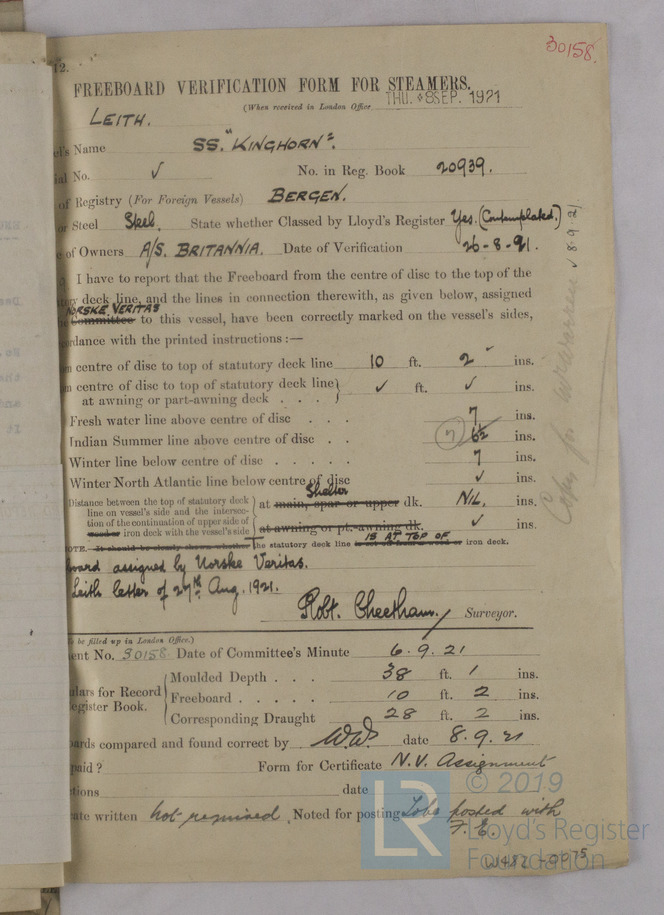 30158.
12.
FREEBOARD VERIFICATION FORM FOR STEAMERS.
(When received in London Office THU. 8 SEP. 1921
LEITH.
el's Name SS. "KINGHORN".
ial No. ✓ No. in Reg. Book 20939.
of Registry (For Foreign Vessels) BERGEN.
or Steel Steel. State whether Classed by Lloyd's Register Yes. (Contemplated.)
e of Owners A/S. BRITANNIA. Date of Verification 26-8-21.
I have to report that the Freeboard from the centre of disc to the top of the
tory deck line, and the lines in connection therewith, as given below, assigned
NORSKE VERITAS
Committee to this vessel, have been correctly marked on the vessel's sides,
cordance with the printed instructions :—
m centre of disc to top of statutory deck line 10 ft. 2 ins.
m centre of disc to top of statutory deck line } ✓ ft. ✓ ins.
at awning or part-awning deck . . .
Fresh water line above centre of disc . . . 7 ins.
Indian Summer line above centre of disc . . (7) 6½ ins.
Winter line below centre of disc . . . . . 7 ins.
Winter North Atlantic line below centre of disc ✓ ins.
Distance between the top of statutory deck
line on vessel's side and the intersec-
tion of the continuation of upper side of
wood or iron deck with the vessel's side
Shelter
at main, spar or upper dk. NIL. ins.
at awning or pt.-awning dk. ✓ ins.
OTE. It should be clearly shewn whether The statutory deck line IS AT TOP OF iron deck.
board assigned by Norske Veritas.
Leith letter of 27th Aug. 1921.
Robt. Cheetham. Surveyor.
To be filled up in London Office.)
ent No. 30158 Date of Committee's Minute 6.9.21
ulars for Record
egister Book.
Moulded Depth . . . 38 ft. 1 ins.
Freeboard . . . . . 10 ft. 2 ins.
Corresponding Draught 28 ft. 2 ins.
ards compared and found correct by W.W. date 8.9.21
paid ? Form for Certificate N.V. Assignment
tions date
ate written not required. Noted for posting to be posted with
F.E.
8.9.21
LR
© 2019
Lloyd's Register
Foundation
W482-0075